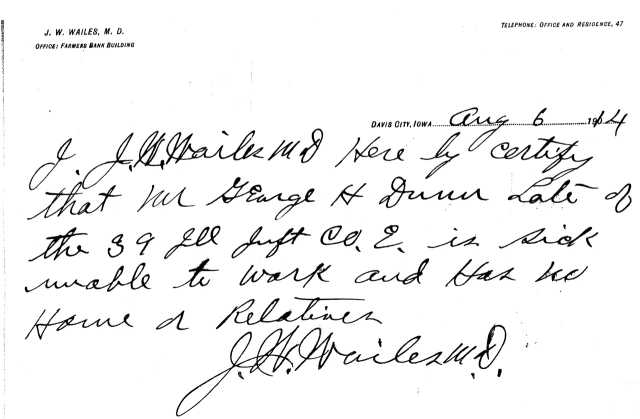 J. W. WAILES, M. D.
OFFICE: FARMERS BANK BUILDING
TELEPHONE: OFFICE AND RESIDENCE, 47
DAVIS CITY, IOWA Aug 6 1914
I. J. W. Wailes MD Here by certify
that Mr George H Late of
the 39 Ill Inft CO. E. is sick
unable to work and Has no
Home or Relatives
J. W. Wailes M.D.